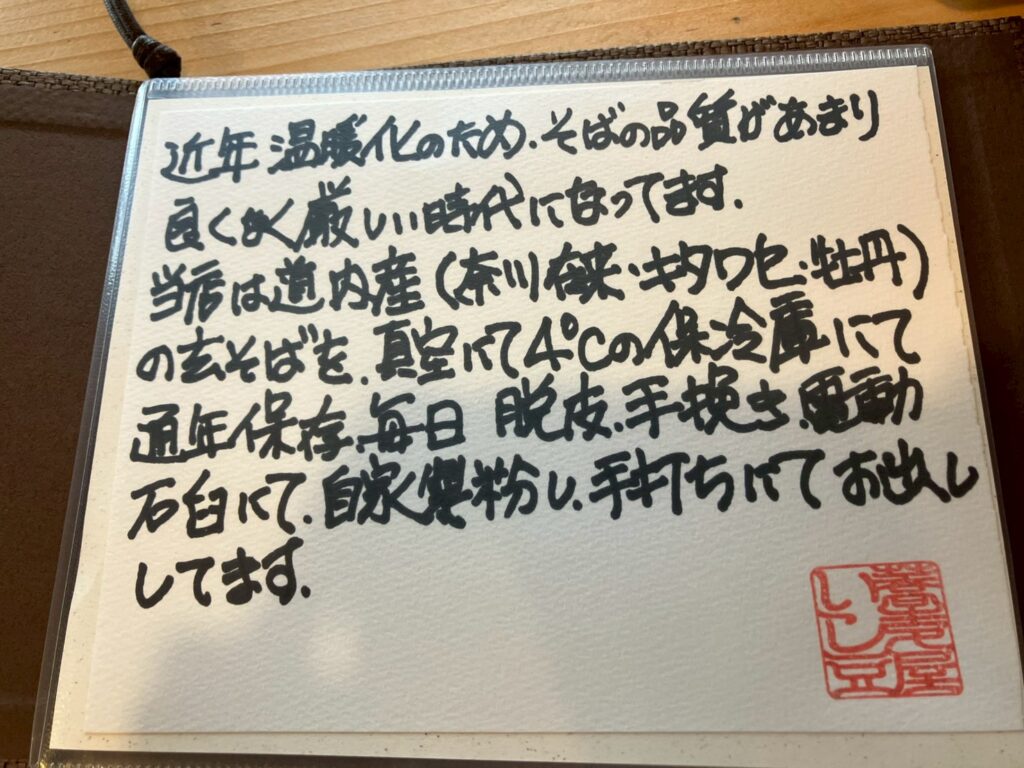 近年 温暖化のため、そばの品質があまり
良くなく厳しい時代になってます.
当店は道内産(奈川在来・キタワセ・牡丹)
の玄そばを、真空にて4℃の保冷庫にて
通年保存、毎日 脱皮、手挽き、電動
石臼にて、自家製粉し、手打ちにてお出し
してます.
蕎麦屋